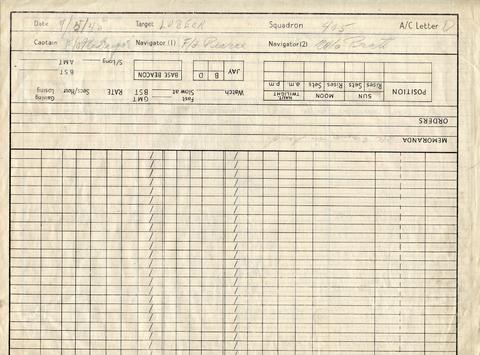 Date 7/5/45 Target LUBECK Squadron 405 A/C Letter D
Captain Navigator (1) F/O Pearce Navigator (2)
MEMORANDA
ORDERS
POSITION SUN Rises Sets MOON Rises Sets NAUT. TWILIGHT a.m. p.m.
JAY B D BASE BEACON S/Long AMT
BST
Watch Fast Slow at GMT BST RATE Secs/Hour Gaining Losing